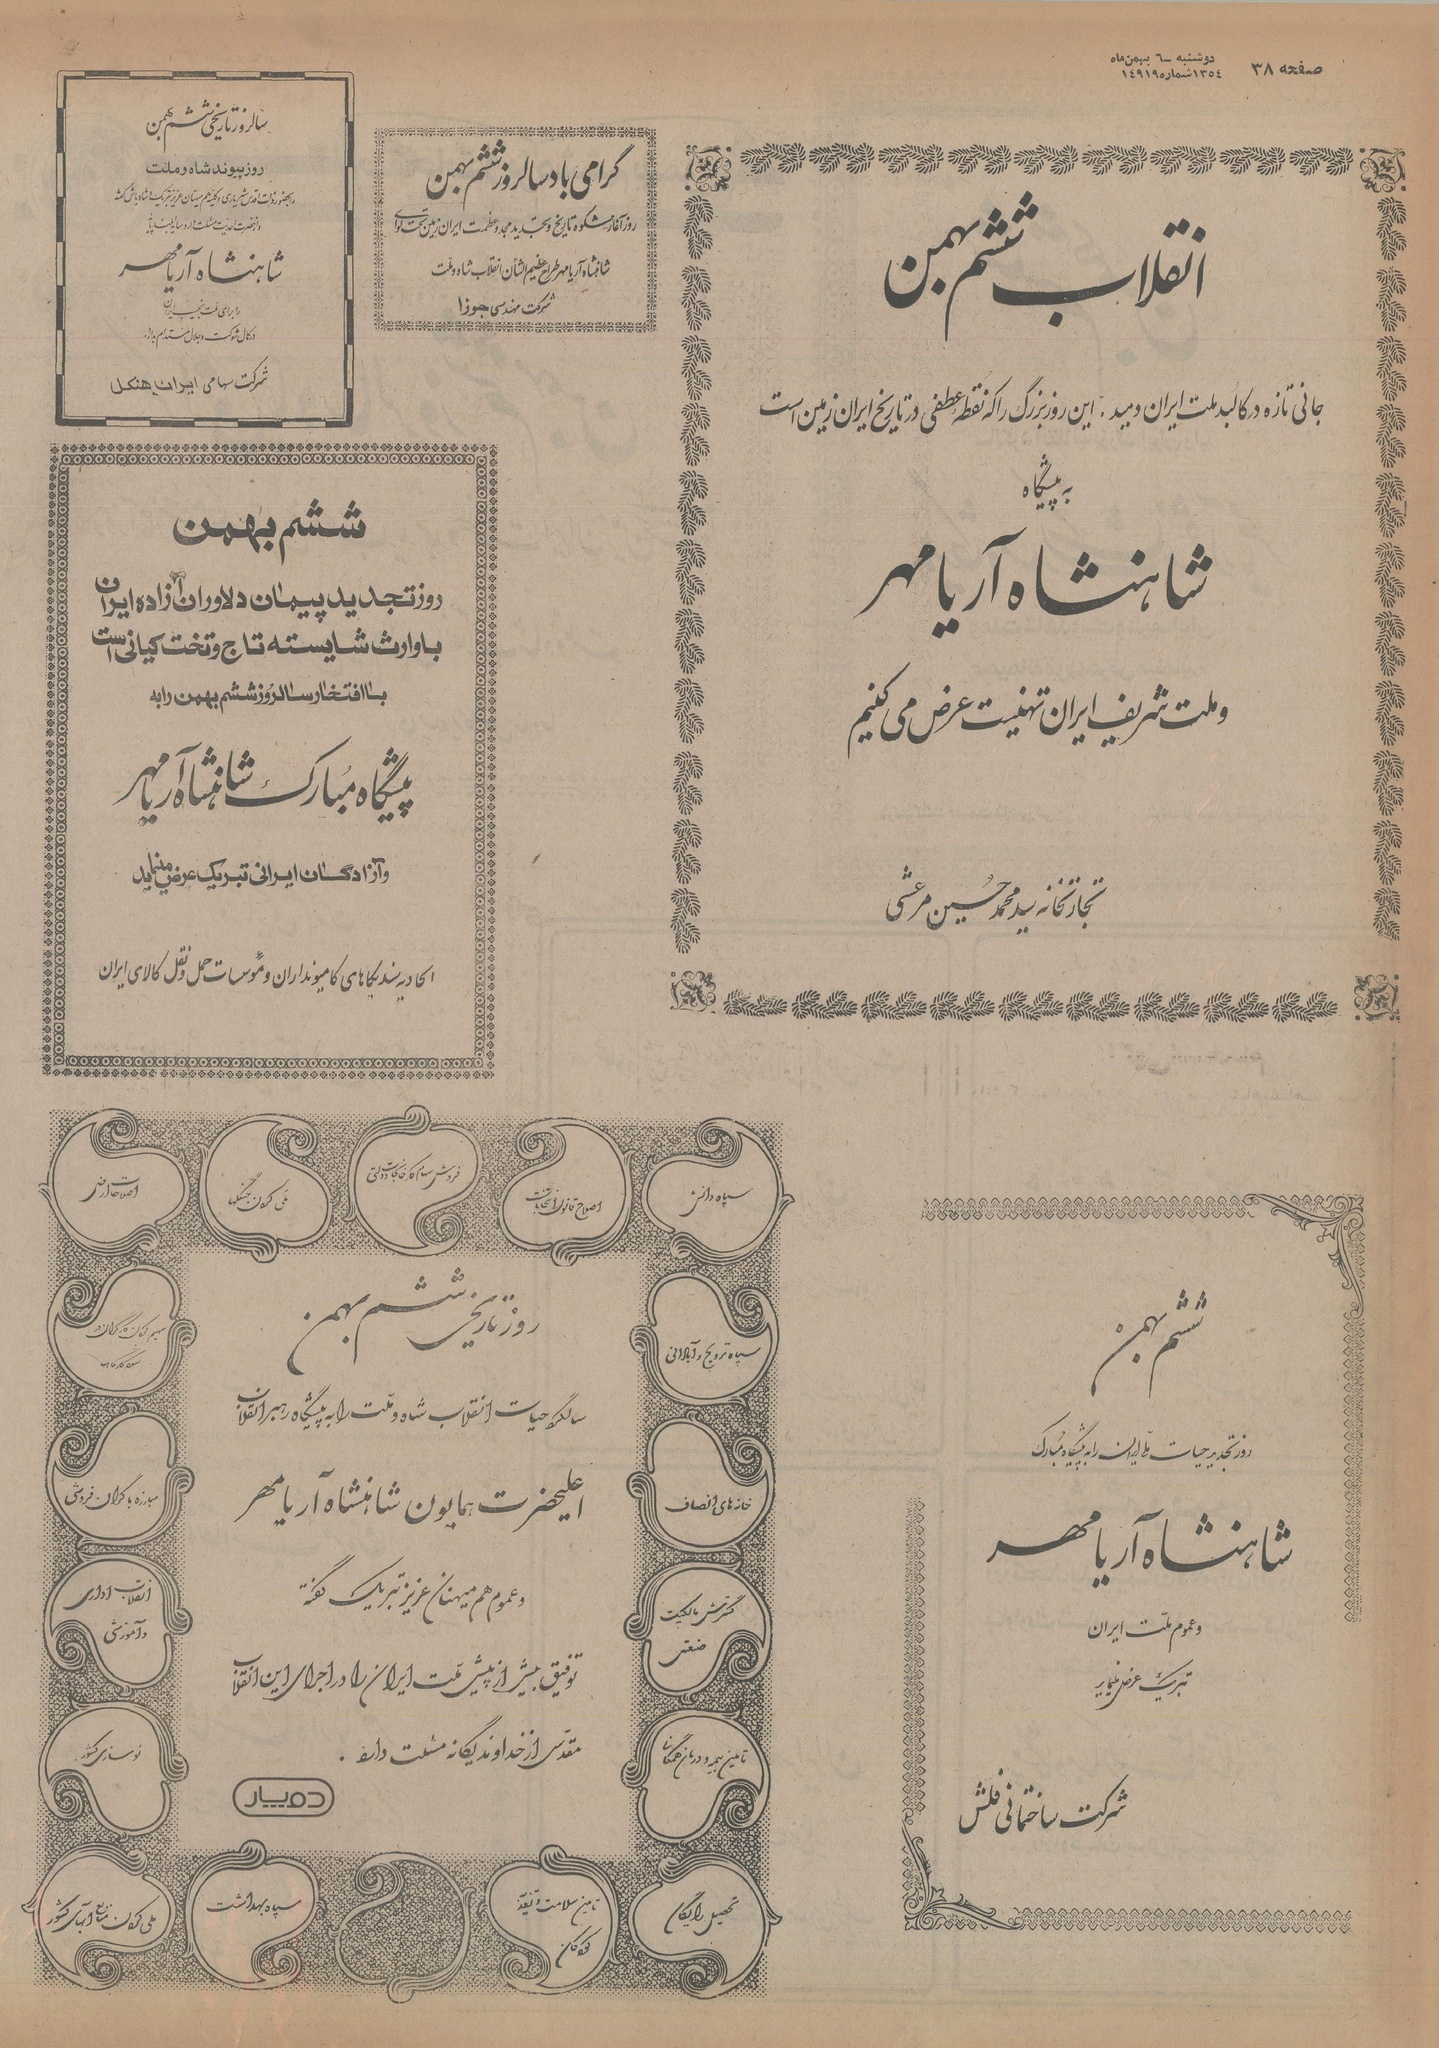 صفحه ۳۸
دوشنبه ـ ٦ بهمن ماه
۱۳٥٤ شماره ۱٤۹۱۹
انقلاب ششم بهمن
جانی تازه در کالبد ملت ایران دمید . این روز بزرگ را که نقطه عطفی در تاریخ ایران زمین است
به پیشگاه
شاهنشاه آریامهر
و ملت شریف ایران تهنیت عرض می کنیم
تجارتخانه سید محمد حسین مرعشی
گرامی باد سالروز ششم بهمن
روز آغاز شکوه تاریخ و تجدید مجد و عظمت ایران زمین تحت لوای
شاهنشاه آریامهر طراح عظیم الشأن انقلاب شاه و ملت
شرکت مهندسی جوزا
سالروز تاریخی ششم بهمن
روز پیوند شاه و ملت
شاهنشاه آریامهر
را برای ملت نجیب ایران
در کمال شوکت و جلال مستدام بدارد
شرکت سهامی ایران هنکل
ششم بهمن
روز تجدید پیمان دلاوران آزاده ایران
با وارث شایسته تاج و تخت کیانی است
با افتخار سالروز ششم بهمن را به
پیشگاه مبارک شاهنشاه آریامهر
و آزادگان ایرانی تبریک عرض مینماید
اتحادیه سندیکاهای کامیونداران و مؤسسات حمل و نقل کالای ایران
ششم بهمن
روز تجدید حیات ملی ایران را به پیشگاه مبارک
شاهنشاه آریامهر
و عموم ملت ایران
تبریک عرض مینماید
شرکت ساختمانی فلش
سپاه دانش
اصلاح قانون انتخابات
فروش سهام کارخانجات دولتی
ملی کردن جنگلها
اصلاحات ارضی
سپاه ترویج و آبادانی
خانه های انصاف
گسترش مالکیت
صنعتی
تامین بیمه و درمان همگانی
تحصیل رایگان
تامین سلامت و تغذیه
کودکان
سپاه بهداشت
ملی کردن منابع آبهای کشور
نوسازی کشور
انقلاب اداری
و آموزشی
مبارزه با گران فروشی
سهیم کردن کارگران در
سود کارگاهها
روز تاریخی ششم بهمن
سالگرد حیات انقلاب شاه و ملت را به پیشگاه رهبر انقلاب
اعلیحضرت همایون شاهنشاه آریامهر
و عموم هم میهنان عزیز تبریک گفته
توفیق بیش از پیش ملت ایران را در اجرای این انقلاب
مقدس از خداوند یگانه مسئلت دارد .